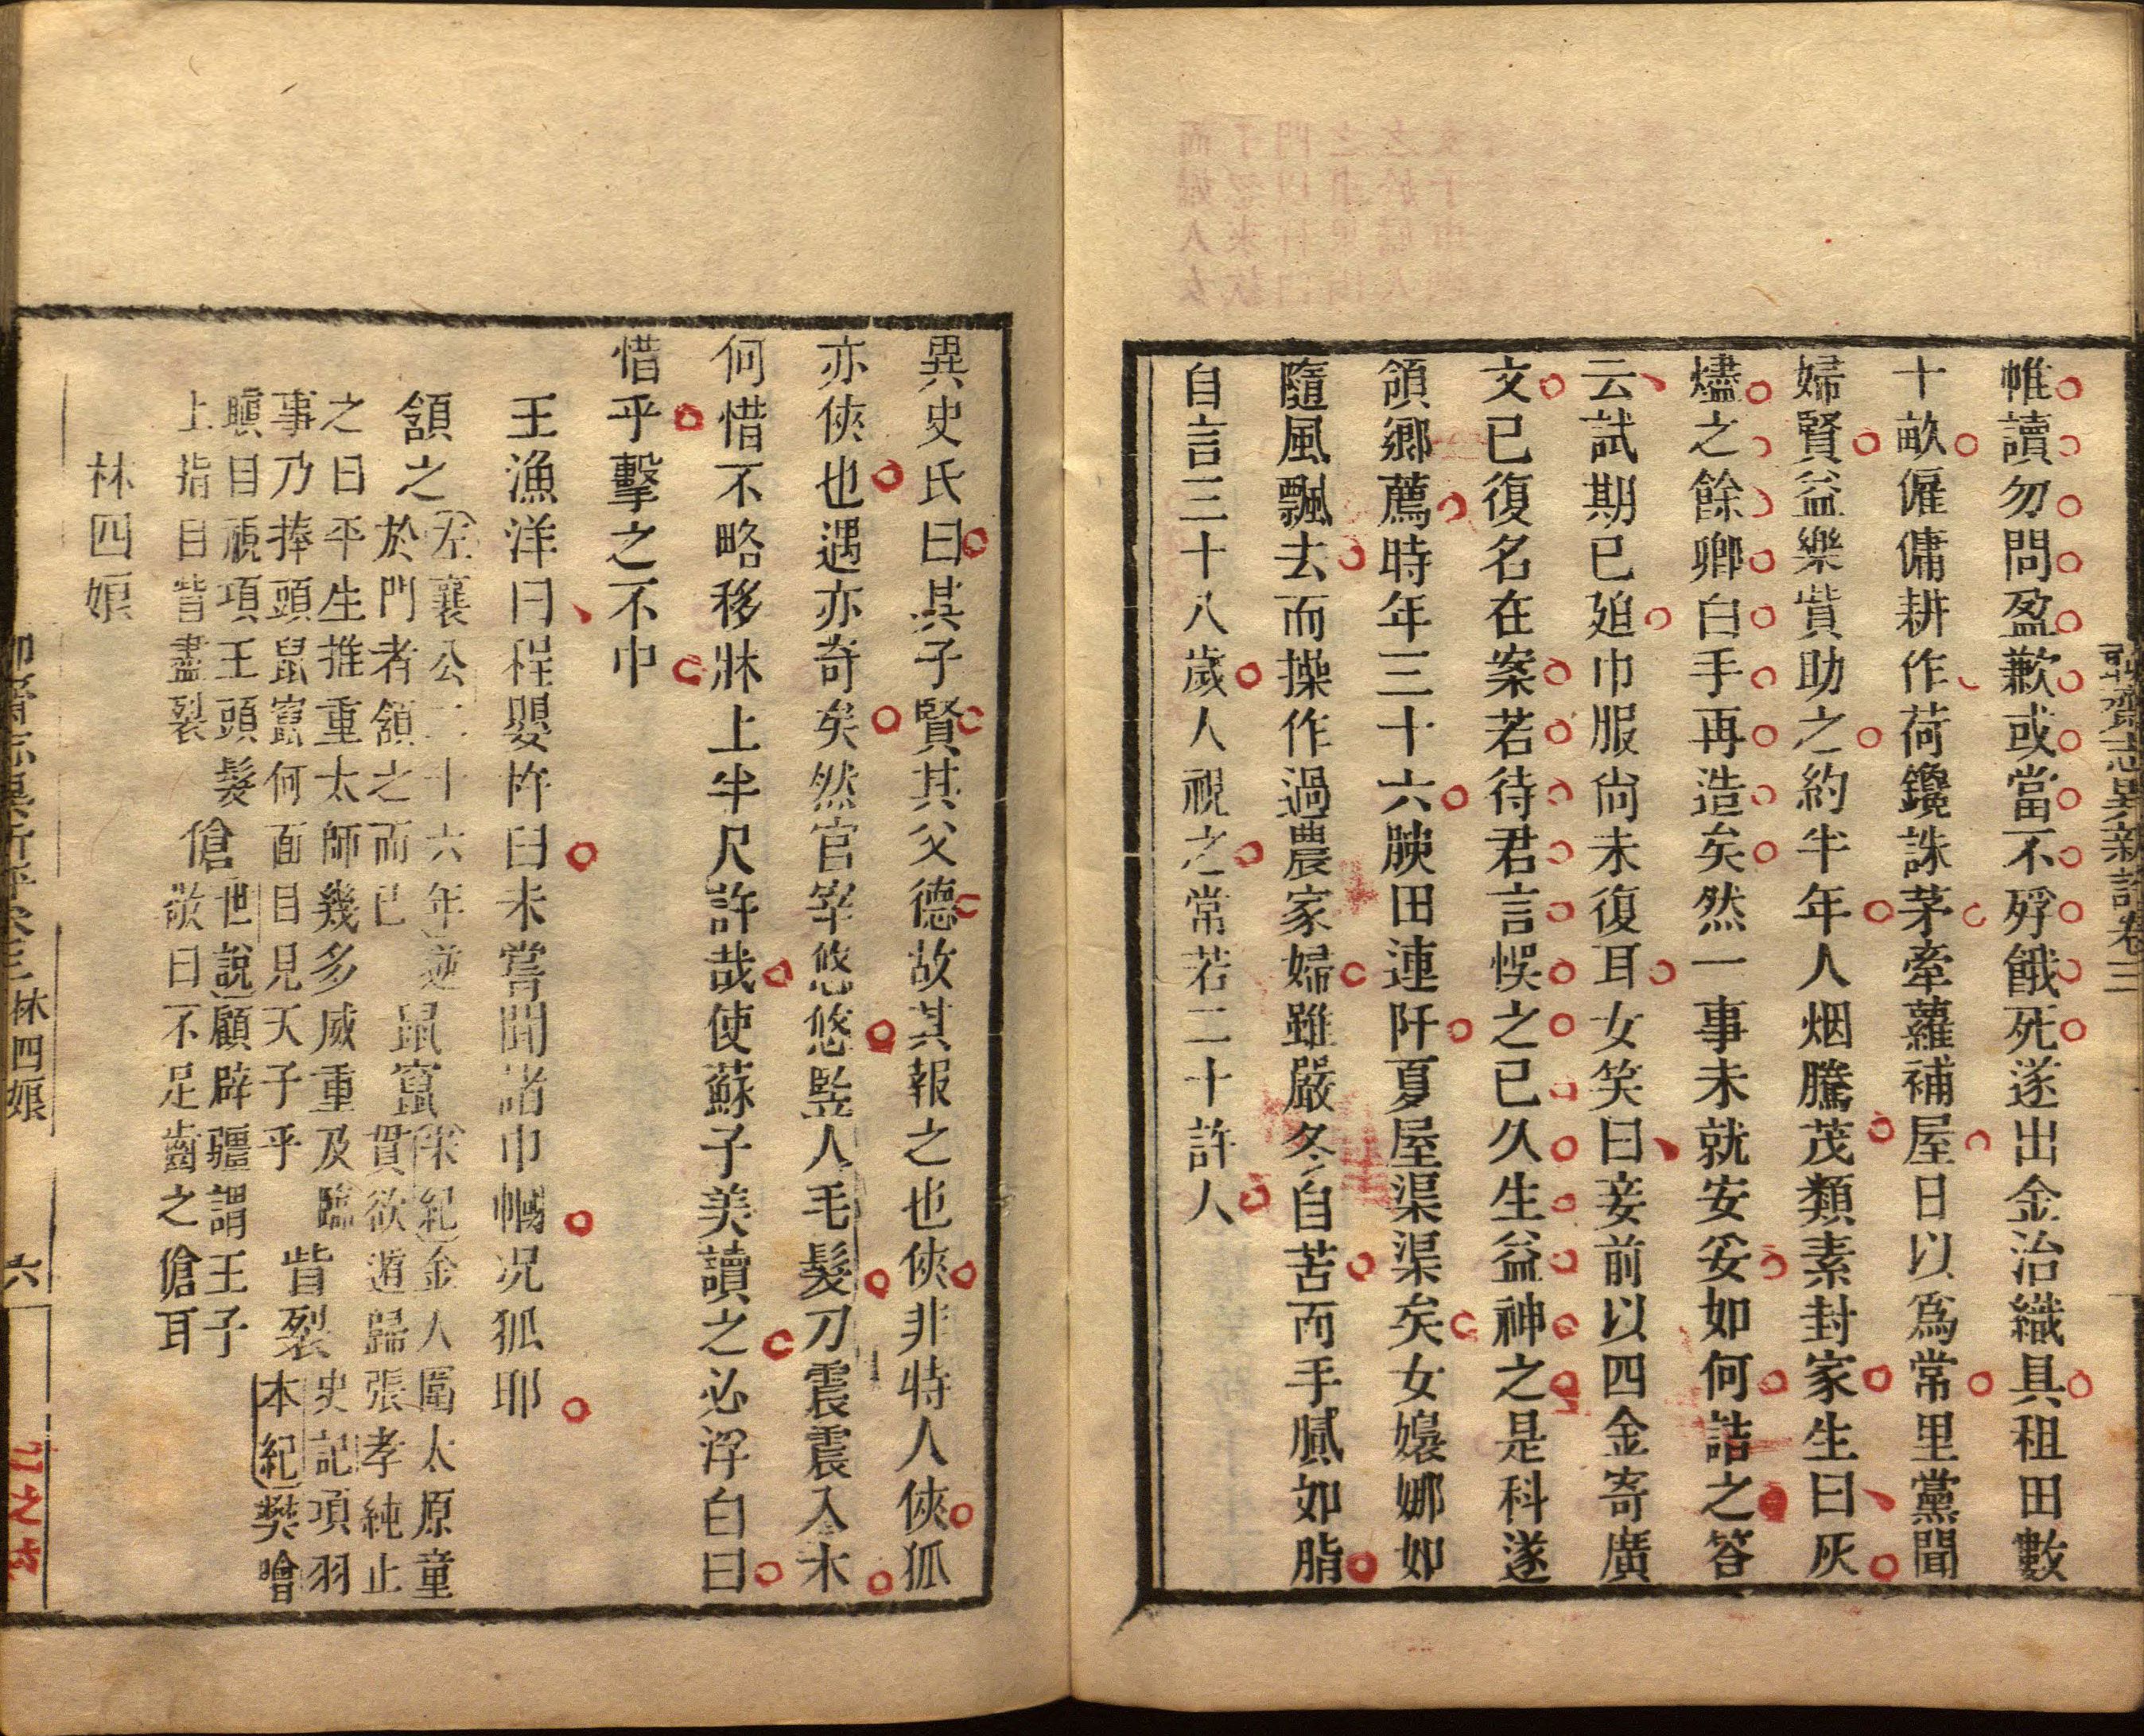 聊齋志異新評卷三
帷讀勿問盈歉或當不殍餓死遂出金治織具租田數
十畝僱傭耕作荷鑱誅茅牽蘿補屋日以爲常里黨聞
婦賢益樂貲助之約半年人烟騰茂類素封家生曰灰
燼之餘卿白手再造矣然一事未就安妥如何詰之答
云試期已廹巾服尚未復耳女笑曰妾前以四金寄廣
文已復名在案若待君言悞之已久生益神之是科遂
領鄉薦時年三十六腴田連阡夏屋渠渠矣女嬝娜如
隨風飄去而操作過農家婦雖嚴冬自苦而手膩如脂
自言三十八歲人視之常若二十許人
異史氏曰其子賢其父德故其報之也俠非特人俠狐
亦俠也遇亦奇矣然官宰悠悠豎人毛髮刀震震入木
何惜不略移牀上半尺許哉使蘇子美讀之必浮白曰
惜乎擊之不中
王漁洋曰程嬰杵臼未嘗聞諸巾幗况狐耶
頷之
左襄公二十六年逆
於門者頷之而已
鼠竄
宋紀金人圍太原童
貫欲遁歸張孝純止
之曰平生推重太師幾多威重及臨
事乃捧頭鼠竄何面目見天子乎
眥裂
史記項羽
本紀樊噲
瞋目視項王頭髮
上指目眥盡裂
傖
世說顧辟疆謂王子
敬曰不足齒之傖耳
林四娘
林四娘
六